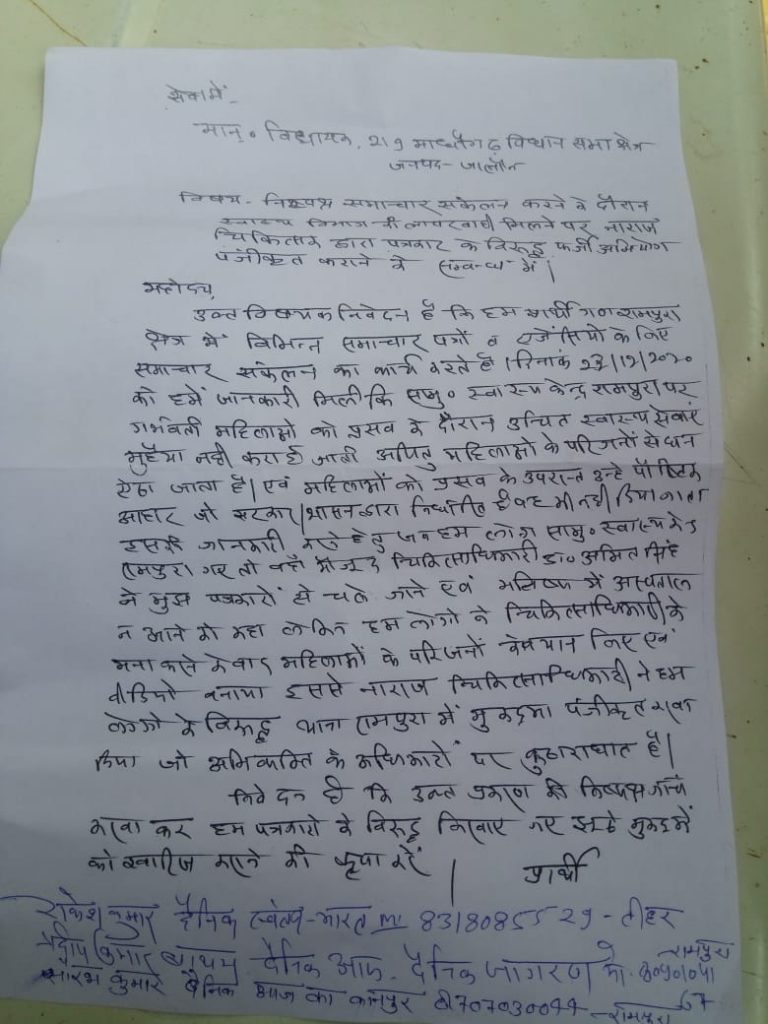 सेवा में -
मान्० विधायक, 219 माधौगढ़ विधान सभा क्षेत्र
जनपद - जालौन
विषय - निष्पक्ष समाचार संकलन करने के दौरान
स्वास्थ्य विभाग की लापरवाही मिलने पर नाराज
चिकित्सक द्वारा पत्रकार के विरूद्ध फर्जी अभियोग
पंजीकृत कराने के सम्बन्ध में|
महोदय,
उक्त विषयक निवेदन है कि हम प्रार्थी गण रामपुरा
क्षेत्र में विभिन्न समाचार पत्रों व एजेंसियो के लिए
समाचार संकलन का कार्य करते हैं। दिनांक 23/12/2020
को हमें जानकारी मिली कि सामु० स्वास्थ्य केन्द्र रामपुरा पर
गर्भवती महिलाओ को प्रसव के दौरान उचित स्वास्थ्य सेवाएं
मुहैया नही कराई जाती अपितु महिलाओं के परिजनों से धन
ऐंठा जाता है| एवं महिलाओं को प्रसव के उपरान्त उन्हे पौष्टिक
आहार जो सरकार/शासन द्वारा निर्धारित है वह भी नही दिया जाता
इसकी जानकारी करने हेतु जब हम लोग सामु० स्वास्थ्य केन्द्र
रामपुरा गए तो वहाँ मौजूद चिकित्साधिकारी डा० अमित सिंह
ने मुझ पत्रकारों से चले जाने एवं भविष्य में अस्पताल
न आने को कहा लेकिन हम लोगो ने चिकित्साधिकारी के
मना करने के बाद महिलाओं के परिजनों के बयान लिए एवं
वीडियो बनाया इससे नाराज चिकित्साधिकारी ने हम
लोगो के विरूद्ध थाना रामपुरा में मुकदमा पंजीकृत करवा
दिया जो अभिव्यक्ति के अधिकारों पर कुठाराघात है|
निवेदन है कि उक्त प्रकरण की निष्पक्ष जाँच
करवा कर हम पत्रकारो के विरूद्ध लिखाए गए झूठे मुकदमें
को खारिज करने की कृपा करें | प्रार्थी
राकेश कुमार दैनिक स्वतंत्र-भारत 8318085529 - टीहर
कुमार दैनिक जागरण मो.
रामपुरा
सौरभ कुमार दैनिक आज का कानपुर रामपुरा